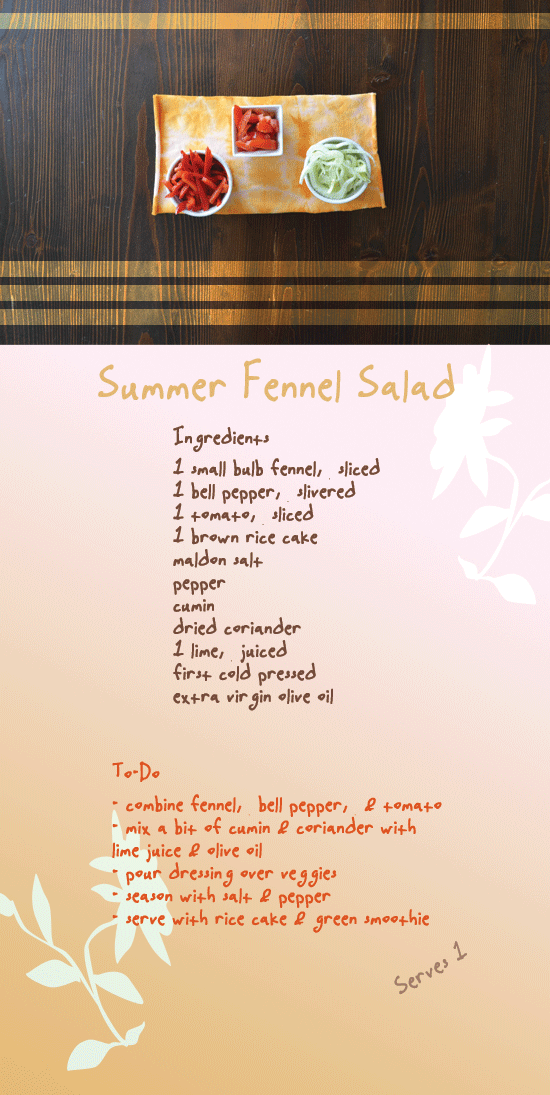 Summer Fennel Salad
Ingredients
1 small bulb fennel, sliced
1 bell pepper, slivered
1 tomato, sliced
1 brown rice cake
maldon salt
pepper
cumin
dried coriander
1 lime, juiced
first cold pressed
extra virgin olive oil
To-Do
- combine fennel, bell pepper, & tomato
- mix a bit of cumin & coriander with
lime juice & olive oil
- pour dressing over veggies
- season with salt & pepper
- serve with rice cake & green smoothie
Serves 1